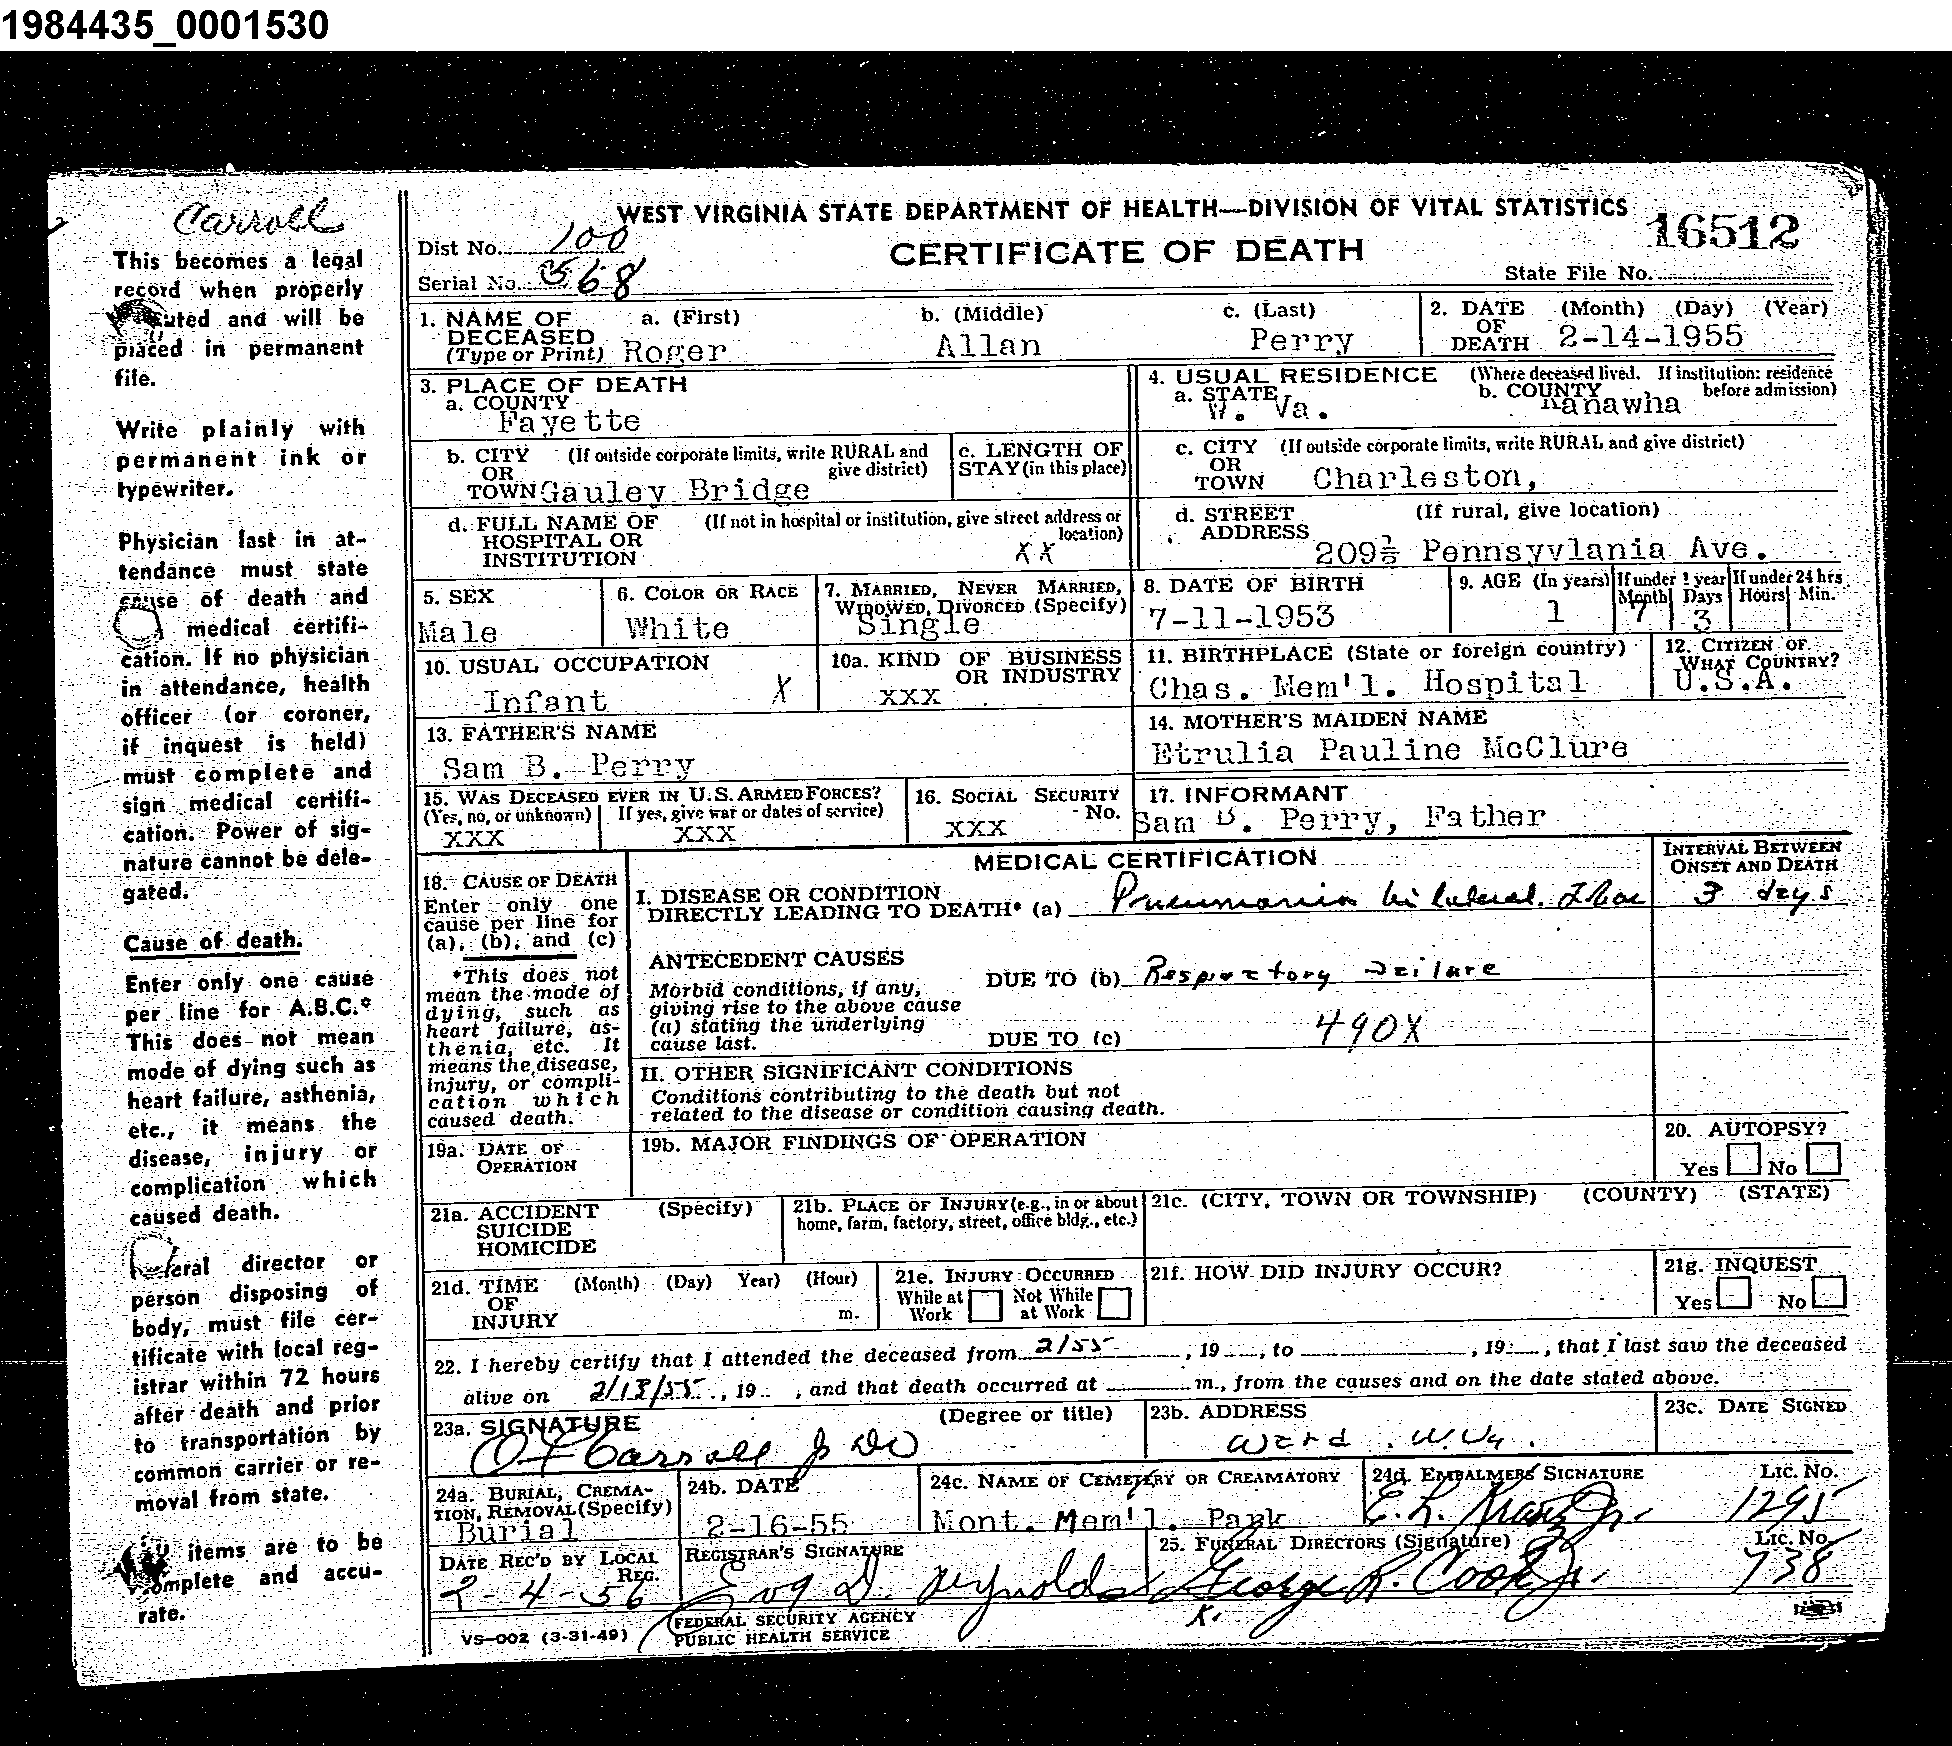 1984435_0001530
Carroll
This becomes a legal
record when properly
and will be
placed in permanent
file.
Write plainly with
permanent ink or
typewriter.
Physician last in at-
tendance must state
cause of death and
medical certifi-
cation. If no physician
in attendance, health
officer (or coroner,
if inquest is held)
must complete and
sign medical certifi-
cation. Power of sig-
nature cannot be dele-
gated.
Cause of death.
Enter only one cause
per line for A.B.C.*
This does not mean
mode of dying such as
heart failure, asthenia,
etc., it means the
disease, injury or
complication which
caused death.
director or
person disposing of
body, must file cer-
tificate with local reg-
istrar within 72 hours
after death and prior
to transportation by
common carrier or re-
moval from state.
items are to be
complete and accu-
rate.
WEST VIRGINIA STATE DEPARTMENT OF HEALTH—DIVISION OF VITAL STATISTICS
Dist No. 100
CERTIFICATE OF DEATH
16512
Serial No. 568
State File No.
1. NAME OF DECEASED (Type or Print)
a. (First) Roger
b. (Middle) Allan
c. (Last) Perry
2. DATE OF DEATH (Month) (Day) (Year) 2-14-1955
3. PLACE OF DEATH
a. COUNTY Fayette
4. USUAL RESIDENCE (Where deceased lived. If institution: residence before admission)
a. STATE W. Va.
b. COUNTY Kanawha
b. CITY OR TOWN (If outside corporate limits, write RURAL and give district) Gauley Bridge
c. LENGTH OF STAY (in this place)
c. CITY OR TOWN (If outside corporate limits, write RURAL and give district) Charleston,
d. FULL NAME OF HOSPITAL OR INSTITUTION (If not in hospital or institution, give street address or location) XX
d. STREET ADDRESS (If rural, give location) 209½ Pennsyvlania Ave.
5. SEX Male
6. COLOR OR RACE White
7. MARRIED, NEVER MARRIED, WIDOWED, DIVORCED (Specify) Single
8. DATE OF BIRTH 7-11-1953
9. AGE (In years) 1
If under 1 year Month 7 Days 3
If under 24 hrs Hours Min.
10. USUAL OCCUPATION Infant X
10a. KIND OF BUSINESS OR INDUSTRY XXX
11. BIRTHPLACE (State or foreign country) Chas. Mem'l. Hospital
12. CITIZEN OF WHAT COUNTRY? U.S.A.
13. FATHER'S NAME Sam B. Perry
14. MOTHER'S MAIDEN NAME Etrulia Pauline McClure
15. WAS DECEASED EVER IN U.S. ARMED FORCES?
(Yes, no, or unknown) XXX
If yes, give war or dates of service) XXX
16. SOCIAL SECURITY No. XXX
17. INFORMANT Sam B. Perry, Father
MEDICAL CERTIFICATION
INTERVAL BETWEEN ONSET AND DEATH
18. CAUSE OF DEATH
Enter only one
cause per line for
(a), (b), and (c)
*This does not
mean the mode of
dying, such as
heart failure, as-
thenia, etc. It
means the disease,
injury, or compli-
cation which
caused death.
I. DISEASE OR CONDITION
DIRECTLY LEADING TO DEATH* (a) Pneumonia bilateral 3 days
ANTECEDENT CAUSES
Morbid conditions, if any,
giving rise to the above cause
(a) stating the underlying
cause last.
DUE TO (b) Respiratory Failure
DUE TO (c) 490X
II. OTHER SIGNIFICANT CONDITIONS
Conditions contributing to the death but not
related to the disease or condition causing death.
19a. DATE OF OPERATION
19b. MAJOR FINDINGS OF OPERATION
20. AUTOPSY?
Yes No
21a. ACCIDENT SUICIDE HOMICIDE (Specify)
21b. PLACE OF INJURY (e.g., in or about home, farm, factory, street, office bldg., etc.)
21c. (CITY, TOWN OR TOWNSHIP) (COUNTY) (STATE)
21d. TIME OF INJURY (Month) (Day) Year) (Hour) m.
21e. INJURY OCCURRED
While at Work Not While at Work
21f. HOW DID INJURY OCCUR?
21g. INQUEST
Yes No
22. I hereby certify that I attended the deceased from 2/55, 19, to , 19, that I last saw the deceased
alive on 2/13/55, 19, and that death occurred at m., from the causes and on the date stated above.
23a. SIGNATURE (Degree or title) Carroll Jr DO
23b. ADDRESS Ward. W.Va.
23c. DATE SIGNED
24a. BURIAL, CREMATION, REMOVAL (Specify) Burial
24b. DATE 2-16-55
24c. NAME OF CEMETERY OR CREAMATORY Mont. Mem'l. Park
24d. EMBALMERS SIGNATURE E. L. Jr. Lic. No. 1295
DATE REC'D BY LOCAL REG. 2-4-56
REGISTRAR'S SIGNATURE D. Reynolds
25. FUNERAL DIRECTORS (Signature) George R. Cook Jr. Lic. No. 738
VS—002 (3-31-49)
FEDERAL SECURITY AGENCY
PUBLIC HEALTH SERVICE